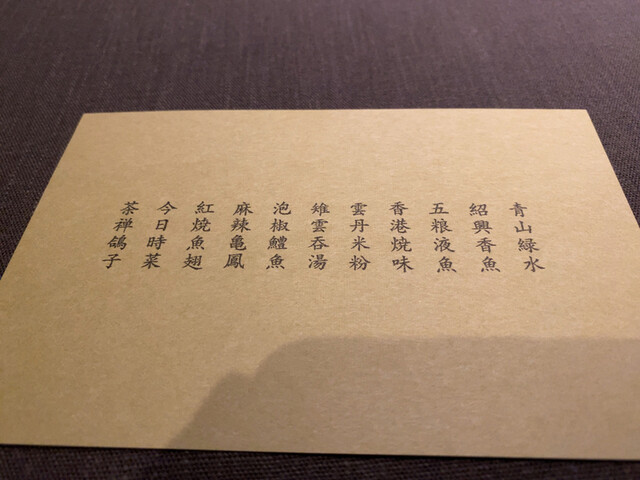 青山緑水
紹興香魚
五粮液魚
香港焼味
雲丹米粉
雉雲呑湯
泡椒鱧魚
麻辣亀鳳
紅焼魚翅
今日時菜
茶禅鴿子